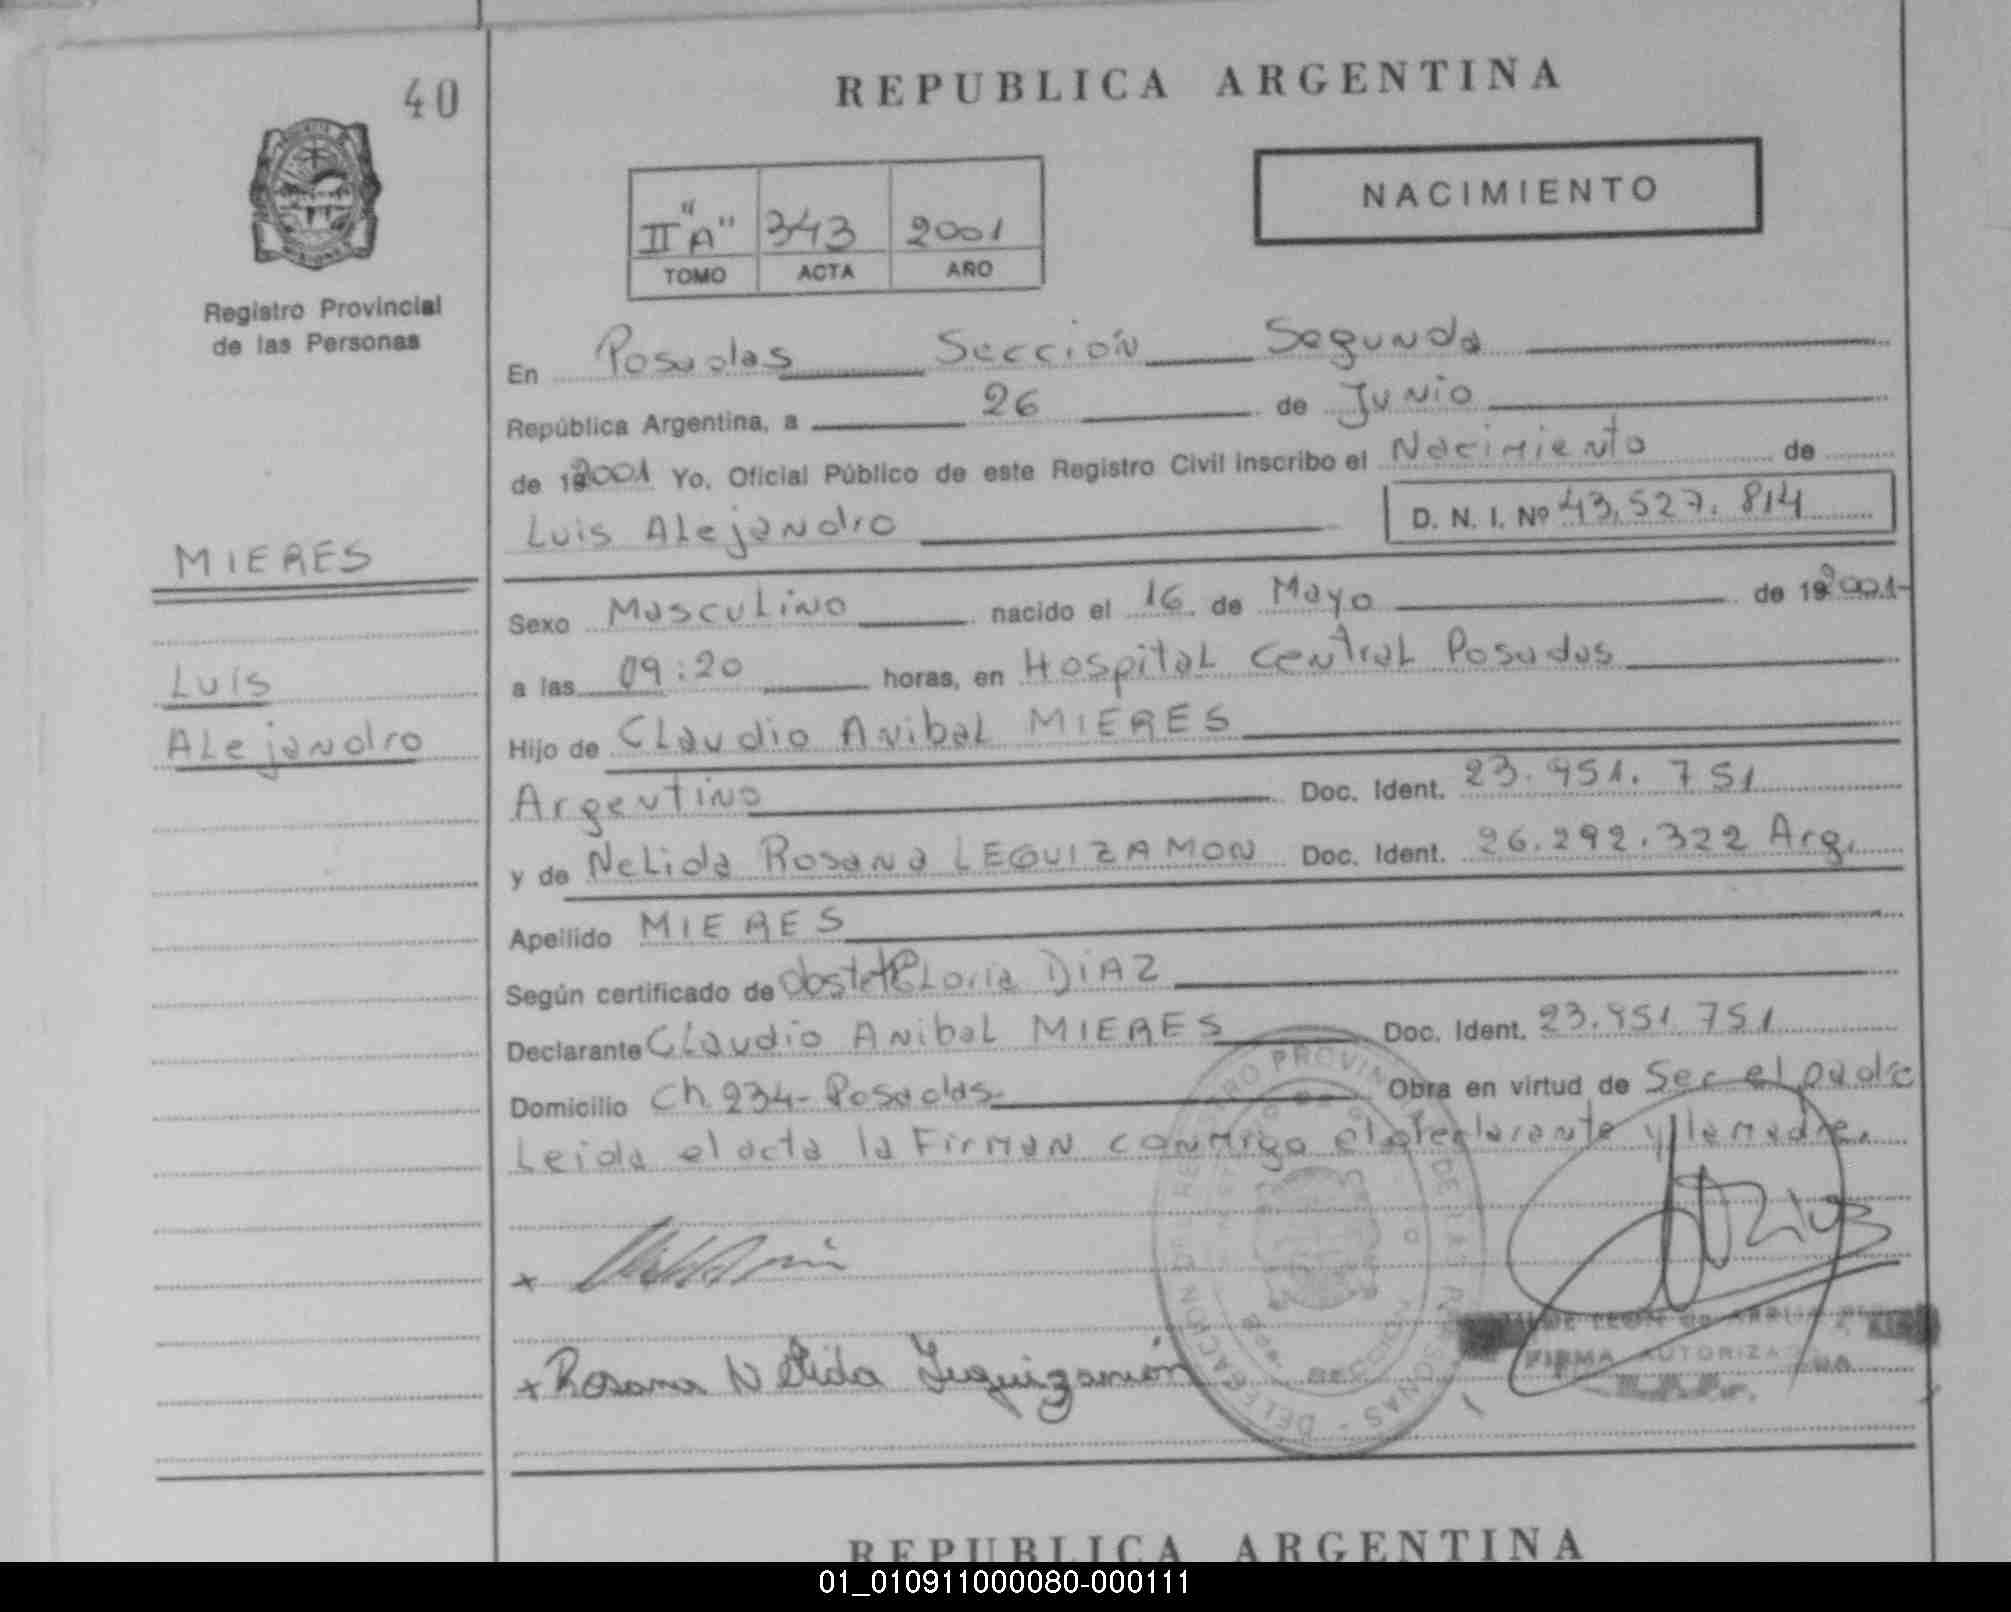 40
REPUBLICA ARGENTINA
NACIMIENTO
II "A" 343 2001
TOMO ACTA AÑO
Registro Provincial
de las Personas
En Posadas Sección Segunda
República Argentina, a 26 de Junio
de 2001 Yo, Oficial Público de este Registro Civil inscribo el Nacimiento de
Luis Alejandro D. N. I. Nº 43.527.814
MIERES
Luis
Alejandro
Sexo Masculino nacido el 16 de Mayo de 2001-
a las 09:20 horas, en Hospital Central Posadas
Hijo de Claudio Anibal MIERES
Argentino Doc. Ident. 23.951.751
y de Nelida Rosana LEGUIZAMON Doc. Ident. 26.292.322 Arg.
Apellido MIERES
Según certificado de Obstet Gloria DIAZ
Declarante Claudio Anibal MIERES Doc. Ident. 23.951.751
Domicilio Ch. 234- Posadas Obra en virtud de Ser el padre
Leida el acta la Firman conmigo el declarante y la madre.
x
x Rosana Nelida Leguizamón
REGISTRO PROVINCIAL DE LAS PERSONAS - DELEGACION
SECCION
FIRMA AUTORIZADA
REPUBLICA ARGENTINA
01_010911000080-000111